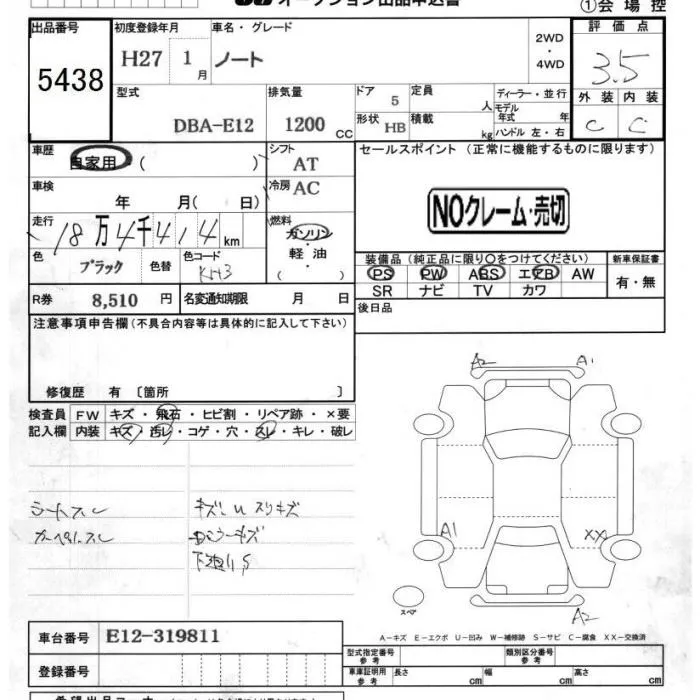 オークション出品申込書
①会場控
出品番号 初度登録年月 車名・グレード 評価点
5438 H27 1月 ノート 2WD・4WD 3.5
型式 排気量 ドア 定員 ディーラー・並行 外装 内装
DBA-E12 1200cc 5 人 モデル年式 年 C C
形状 HB 積載 kg ハンドル 左・右
車歴 シフト セールスポイント(正常に機能するものに限ります)
自家用( ) AT
車検 冷房 AC
年 月( 日) NOクレーム・売切
走行 燃料
18万4千414km ガソリン・軽油( )
色 色替 色コード 装備品(純正品に限り○をつけてください) 新車保証書
ブラック KH3 PS PW ABS エアB AW 有・無
SR ナビ TV カワ
R券 8,510円 名変通知期限 月 日 後日品
注意事項申告欄(不具合内容等は具体的に記入して下さい)
修復歴 有〔箇所 〕
検査員 FW キズ・飛石・ヒビ割・リペア跡・×要
記入欄 内装 キズ・汚レ・コゲ・穴・スレ・キレ・破レ
A2 A1
シートスレ キズU スリキズ
カーペットスレ Dミラーキズ
下廻りS
A1 XX
スペア
A2
車台番号 E12-319811
A-キズ E-エクボ U-凹み W-補修跡 S-サビ C-腐食 XX-交換済
登録番号
型式指定番号 参考 類別区分番号 参考
車庫証明用 参考 長さ cm 幅 cm 高さ cm